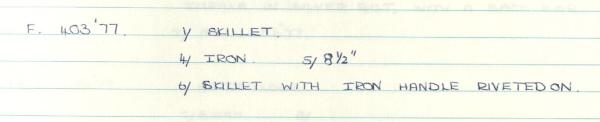 F. 403'77. 1/ SKILLET.
4/ IRON. 5/ 8½"
6/ SKILLET WITH IRON HANDLE RIVETED ON.